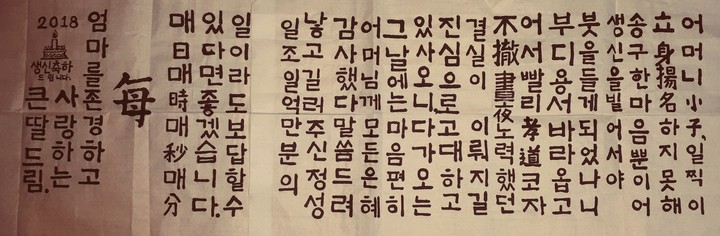 어머니小子.일찍이
立身揚名하지못해
송구한마음뿐이어
생신을빌어서야
붓을들게되었나니
부디용서바라옵고
어서빨리孝道코자
不撤晝夜노력했던
결실이 이뤄지길
진심으로고대하고
있사오니다가오는
그날에는마음편히
어머님께모든은혜
감사했다말씀드려
낳고길러주신정성
일조일억만분의
일이라도보답할수
있다면좋겠습니다.
매日매時매秒매分
每
엄마를존경하고
사랑하는
큰딸드림.
2018
생신축하
드립니다.